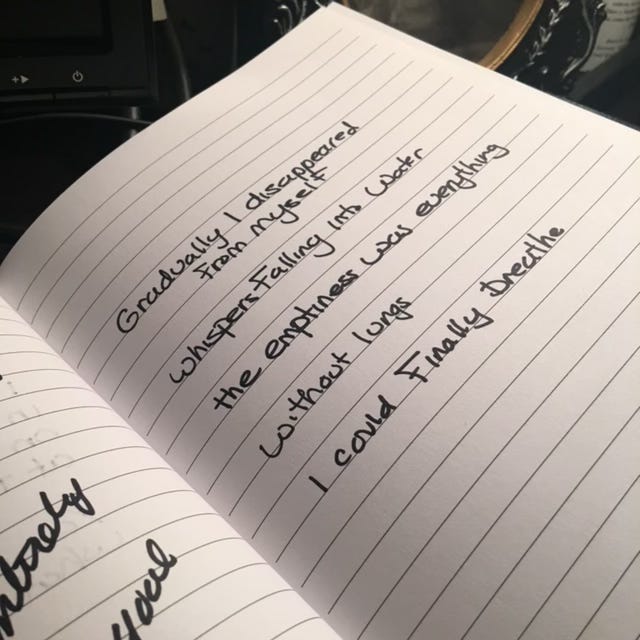 Gradually I disappeared
from myself
whispers Falling into water
the emptiness was everything
without lungs
I could Finally breathe